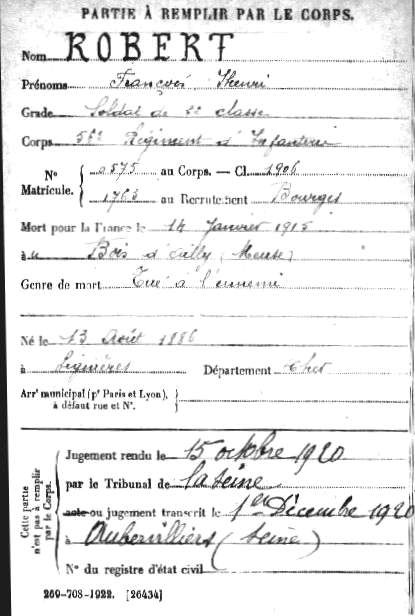 PARTIE À REMPLIR PAR LE CORPS.
Nom ROBERT
Prénoms François Henri
Grade Soldat de 2e classe
Corps 56e Régiment d'Infanterie
N° Matricule. { 0575 au Corps. — Cl. 1906
1763 au Recrutement Bourges
Mort pour la France le 14 Janvier 1915
à u Bois d'ailly (Meuse)
Genre de mort Tué à l'ennemi
Né le 13 Août 1886
à Lignières Département Cher
Arr' municipal (p' Paris et Lyon), }
à défaut rue et N°.
Cette partie n'est pas à remplir par le Corps.
Jugement rendu le 15 octobre 1920
par le Tribunal de la Seine
acte ou jugement transcrit le 1er Décembre 1920
à Aubervilliers (Seine)
N° du registre d'état civil
269-708-1922. [26434]